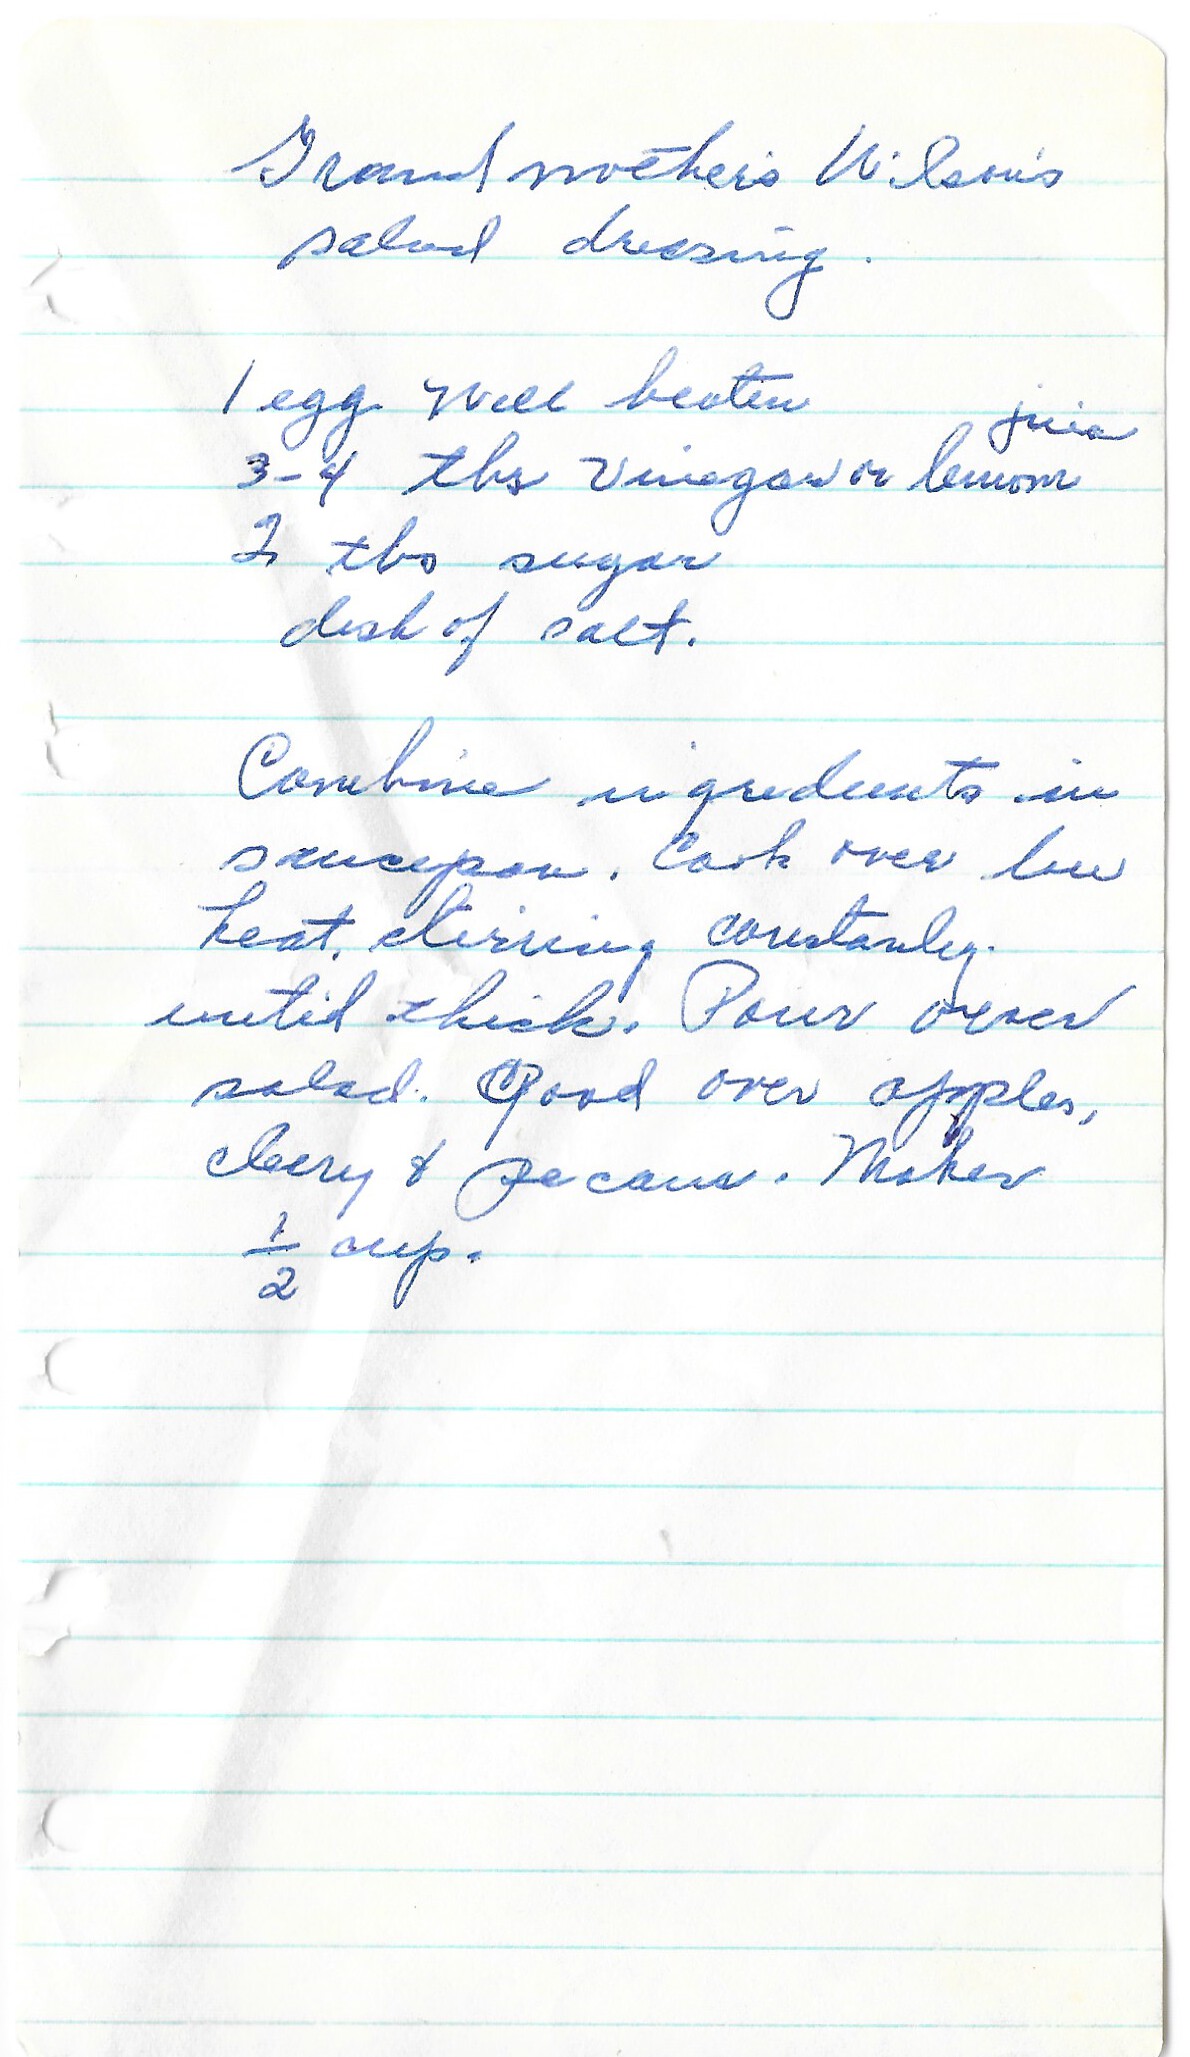 Grandmother's Wilson's
salad dressing.
1 egg well beaten
juice
3-4 tbs vinegar or lemon
2 tbs sugar
dash of salt.
Combine ingredients in
saucepan. Cook over low
heat, stirring constantly
until thick. Pour over
salad. Good over apples,
celery & pecans. Makes
1/2 cup.